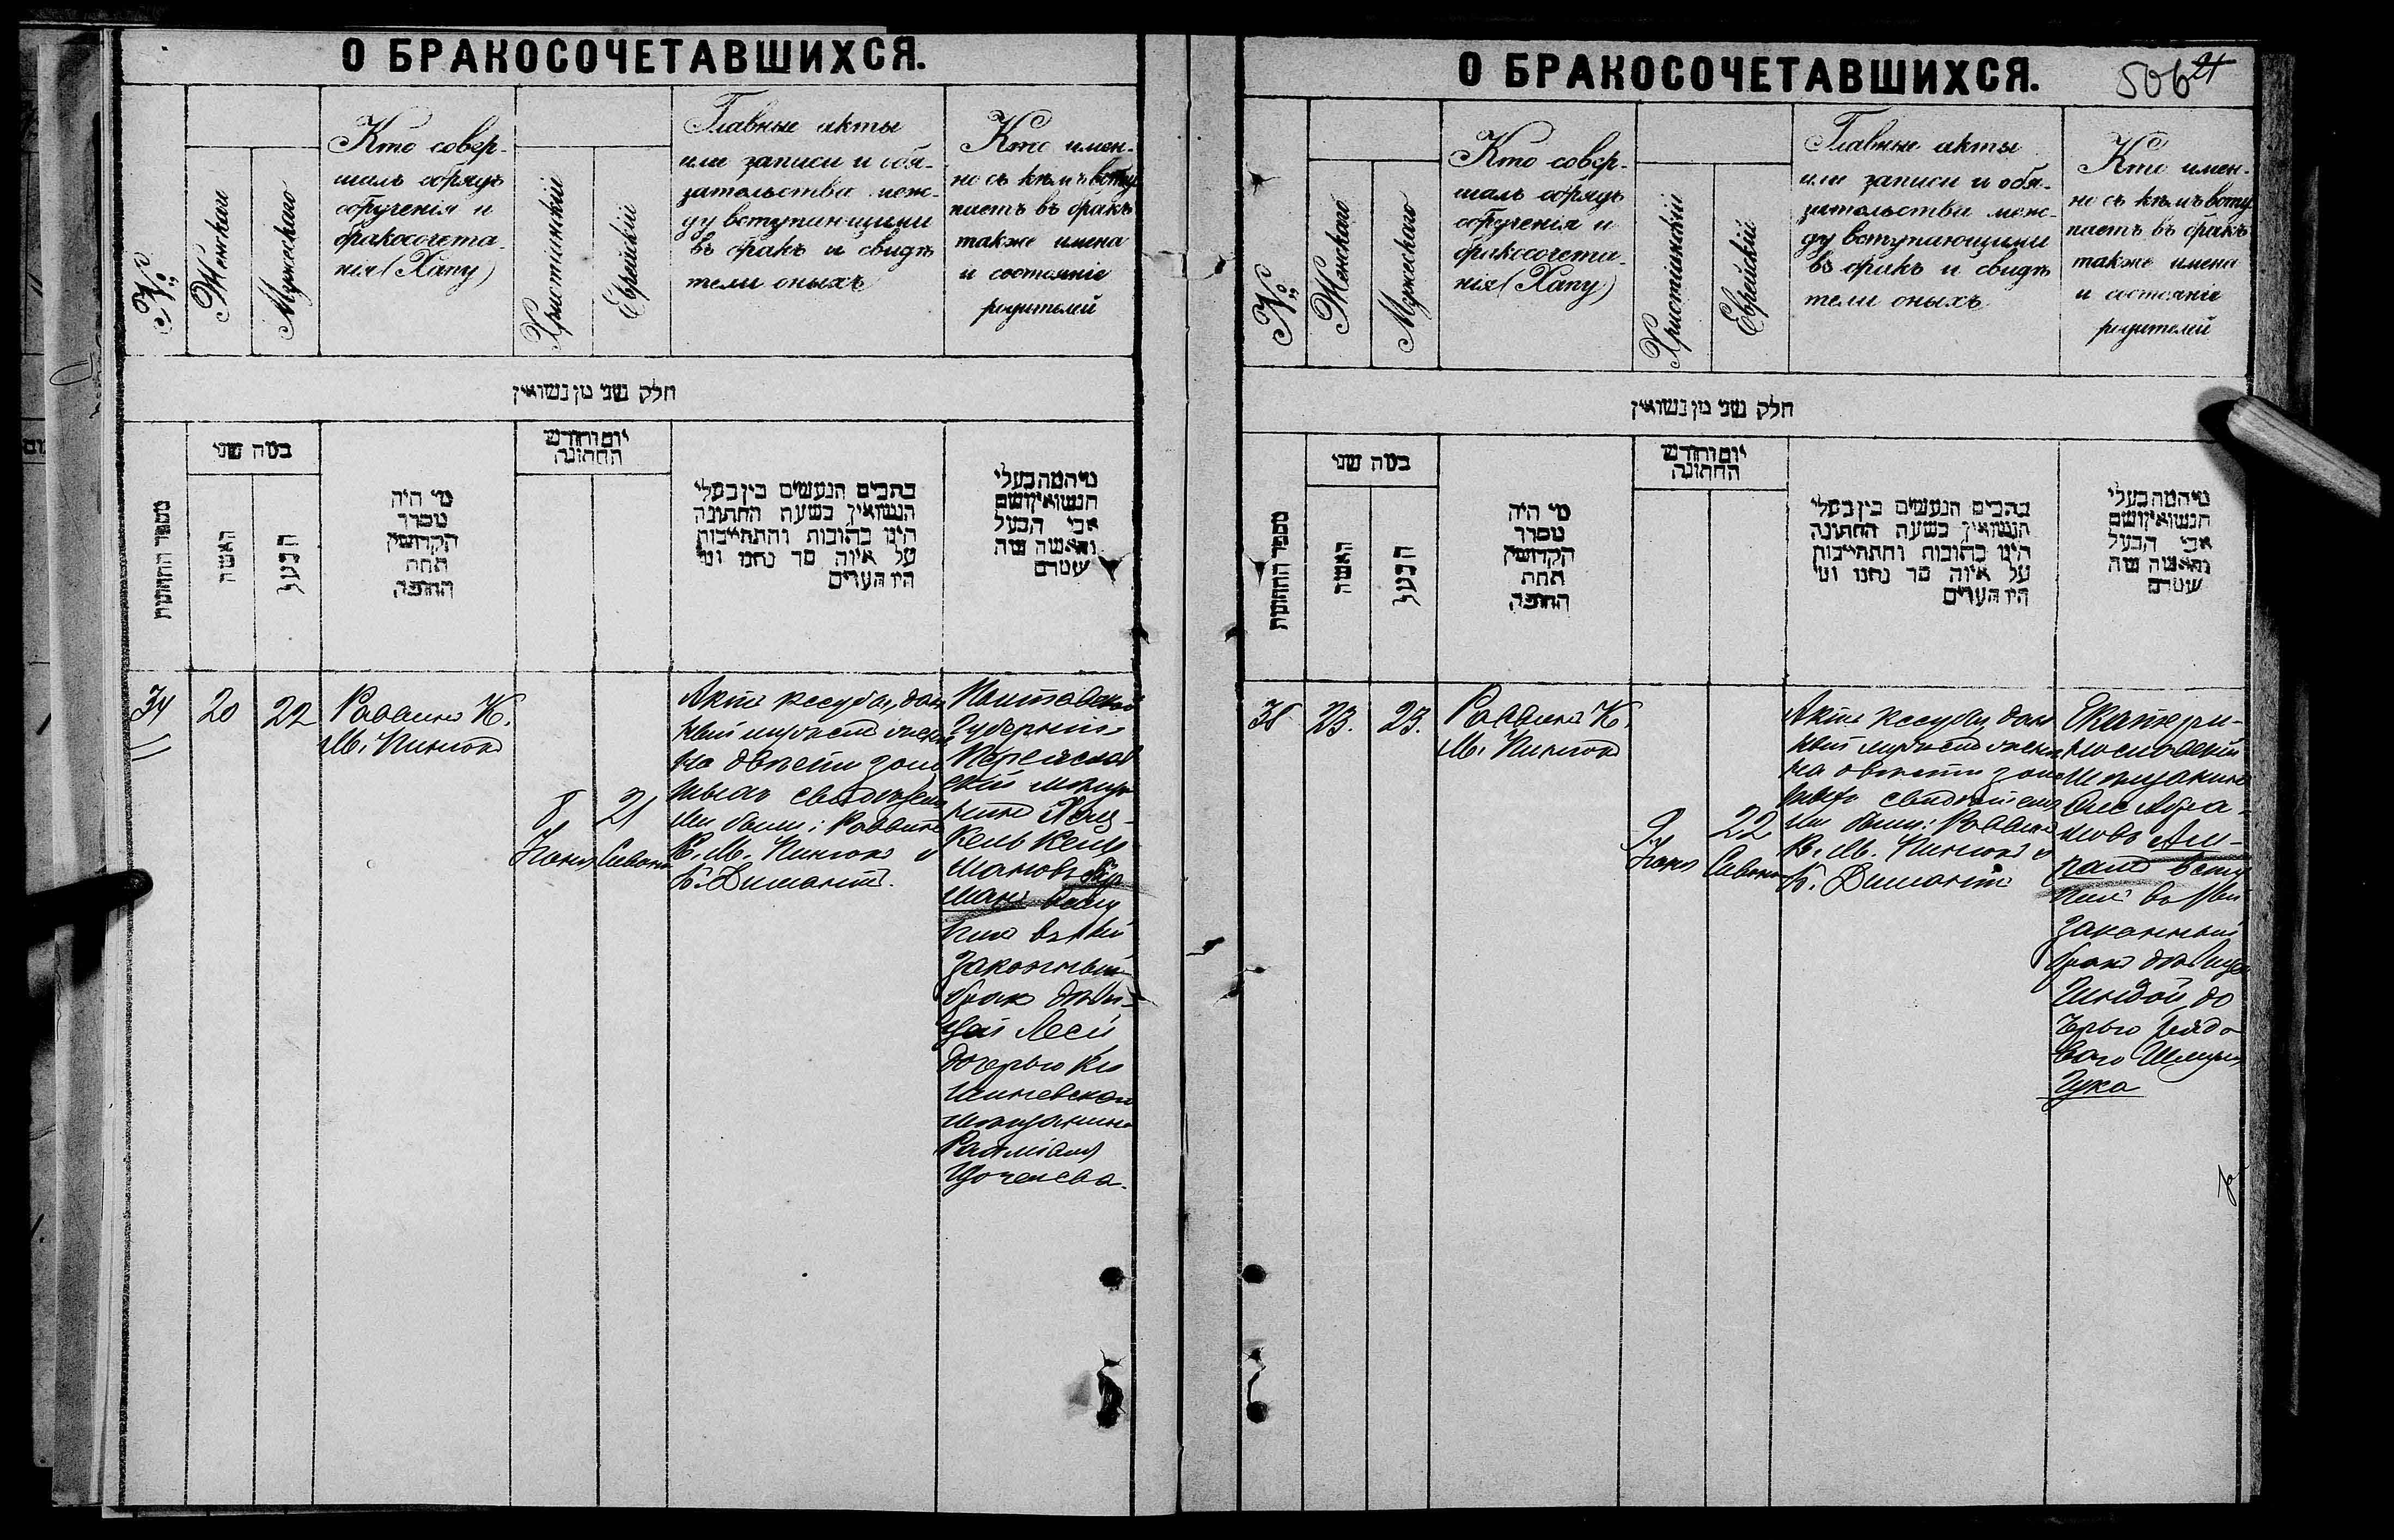 О БРАКОСОЧЕТАВШИХСЯ.
№
Женскаго
Мужескаго
Кто совер-
шалъ обрядъ
обрученія и
бракосочета-
нія (Хапу)
Христіанскій
Еврейскій
Главные акты
или записи и обя-
зательства меж-
ду вступающими
въ бракъ и свидѣ
тели оныхъ
Кто имен-
но съ кѣмъ всту
паетъ въ бракъ
также имена
и состояніе
родителей
חלק שני מן נשואין
מספר החתונות
כמה שני
האשה
הבעל
מי היה
מסדר
הקדושין
תחת
החופה
יום וחודש
החתונה
כתבים הנעשים בין בעלי
הנשואין בשעת החתונה
היינו כתובות והתחייבות
על איזה סך נתנו ומי
היו העדים
מי המה בעלי
הנשואין ושם
אבי הבעל
והאשה ומה
שטרם
34
20
22
Раввинъ К.
М. Пинлонъ
8
Іюня
21
Сивана
Актъ кесуба, дан
ный мужемъ женѣ
на двѣсти золо
тыхъ свидѣтеля
ми были: Раввинъ
К. М. Пинлонъ и
Б. Димантъ.
Полтавской
губерніи
Переяслав
скій мѣща
нинъ
вступ
илъ въ 1-ый
законный
бракъ съ дѣви-
цей Лесей
дочерью Ки
шиневскаго
мѣщанина
О БРАКОСОЧЕТАВШИХСЯ.
506
21
№
Женскаго
Мужескаго
Кто совер-
шалъ обрядъ
обрученія и
бракосочета-
нія (Хапу)
Христіанскій
Еврейскій
Главные акты
или записи и обя-
зательства меж-
ду вступающими
въ бракъ и свидѣ
тели оныхъ
Кто имен-
но съ кѣмъ всту
паетъ въ бракъ
также имена
и состояніе
родителей
חלק שני מן נשואין
מספר החתונות
כמה שני
האשה
הבעל
מי היה
מסדר
הקדושין
תחת
החופה
יום וחודש
החתונה
כתבים הנעשים בין בעלי
הנשואין בשעת החתונה
היינו כתובות והתחייבות
על איזה סך נתנו ומי
היו העדים
מי המה בעלי
הנשואין ושם
אבי הבעל
והאשה ומה
שטרם
35
23.
23.
Раввинъ К.
М. Пинлонъ
9
Іюня
22
Сивана
Актъ кесуба, дан
ный мужемъ женѣ
на двѣсти золо
тыхъ свидѣтеля
ми были: Раввинъ
К. М. Пинлонъ и
Б. Димантъ
Екатери-
нославскій
мѣщанинъ
Абра-
мовъ
вступ
илъ въ 1-ый
законный
бракъ съ дѣвицей
до
черью